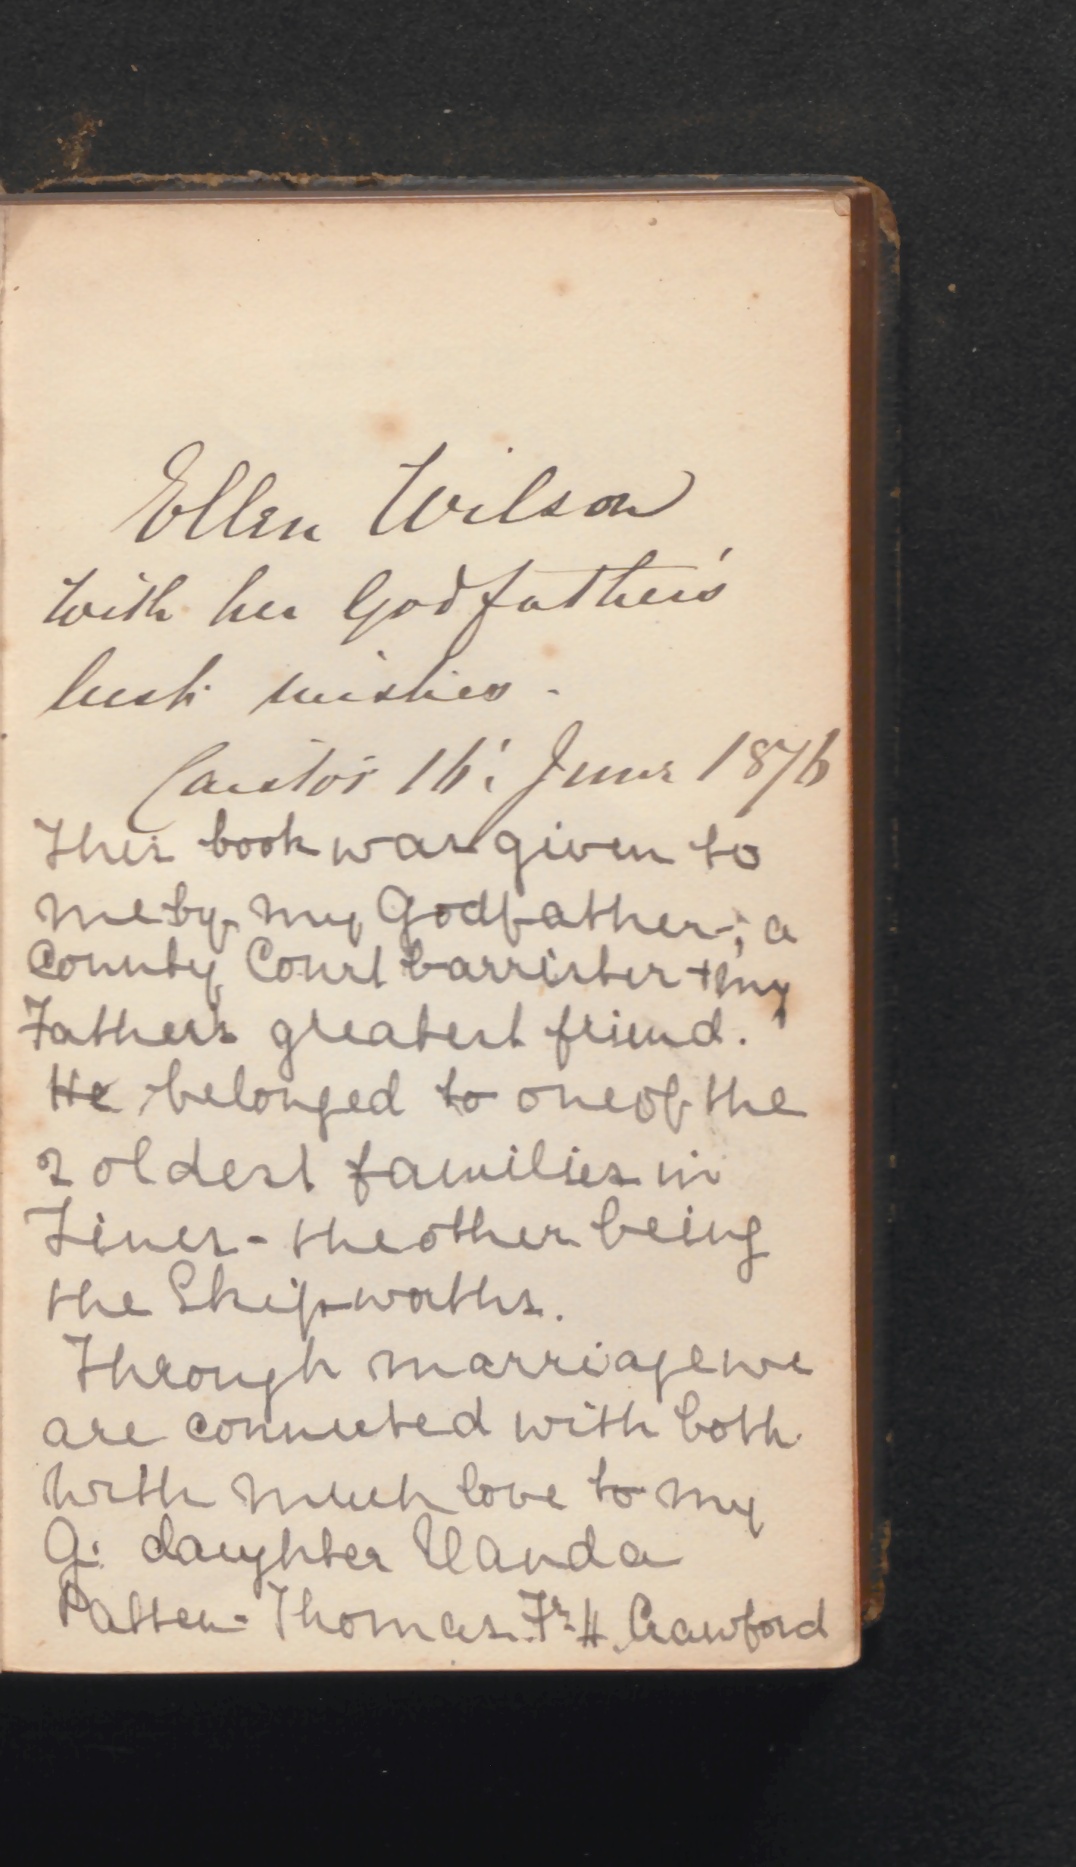 Ellen Wilson
With her Godfather's
best wishes.
Caistor 16: June 1876
This book was given to
me by my Godfather; a
County Court barrister + my
Father's greatest friend.
He belonged to one of the
2 oldest families in
Lincs - the other being
the Skipwoths.
Through marriage we
are connected with both
With much love to my
G. daughter Wanda
Patten-Thomas. Fr. H. Crawford